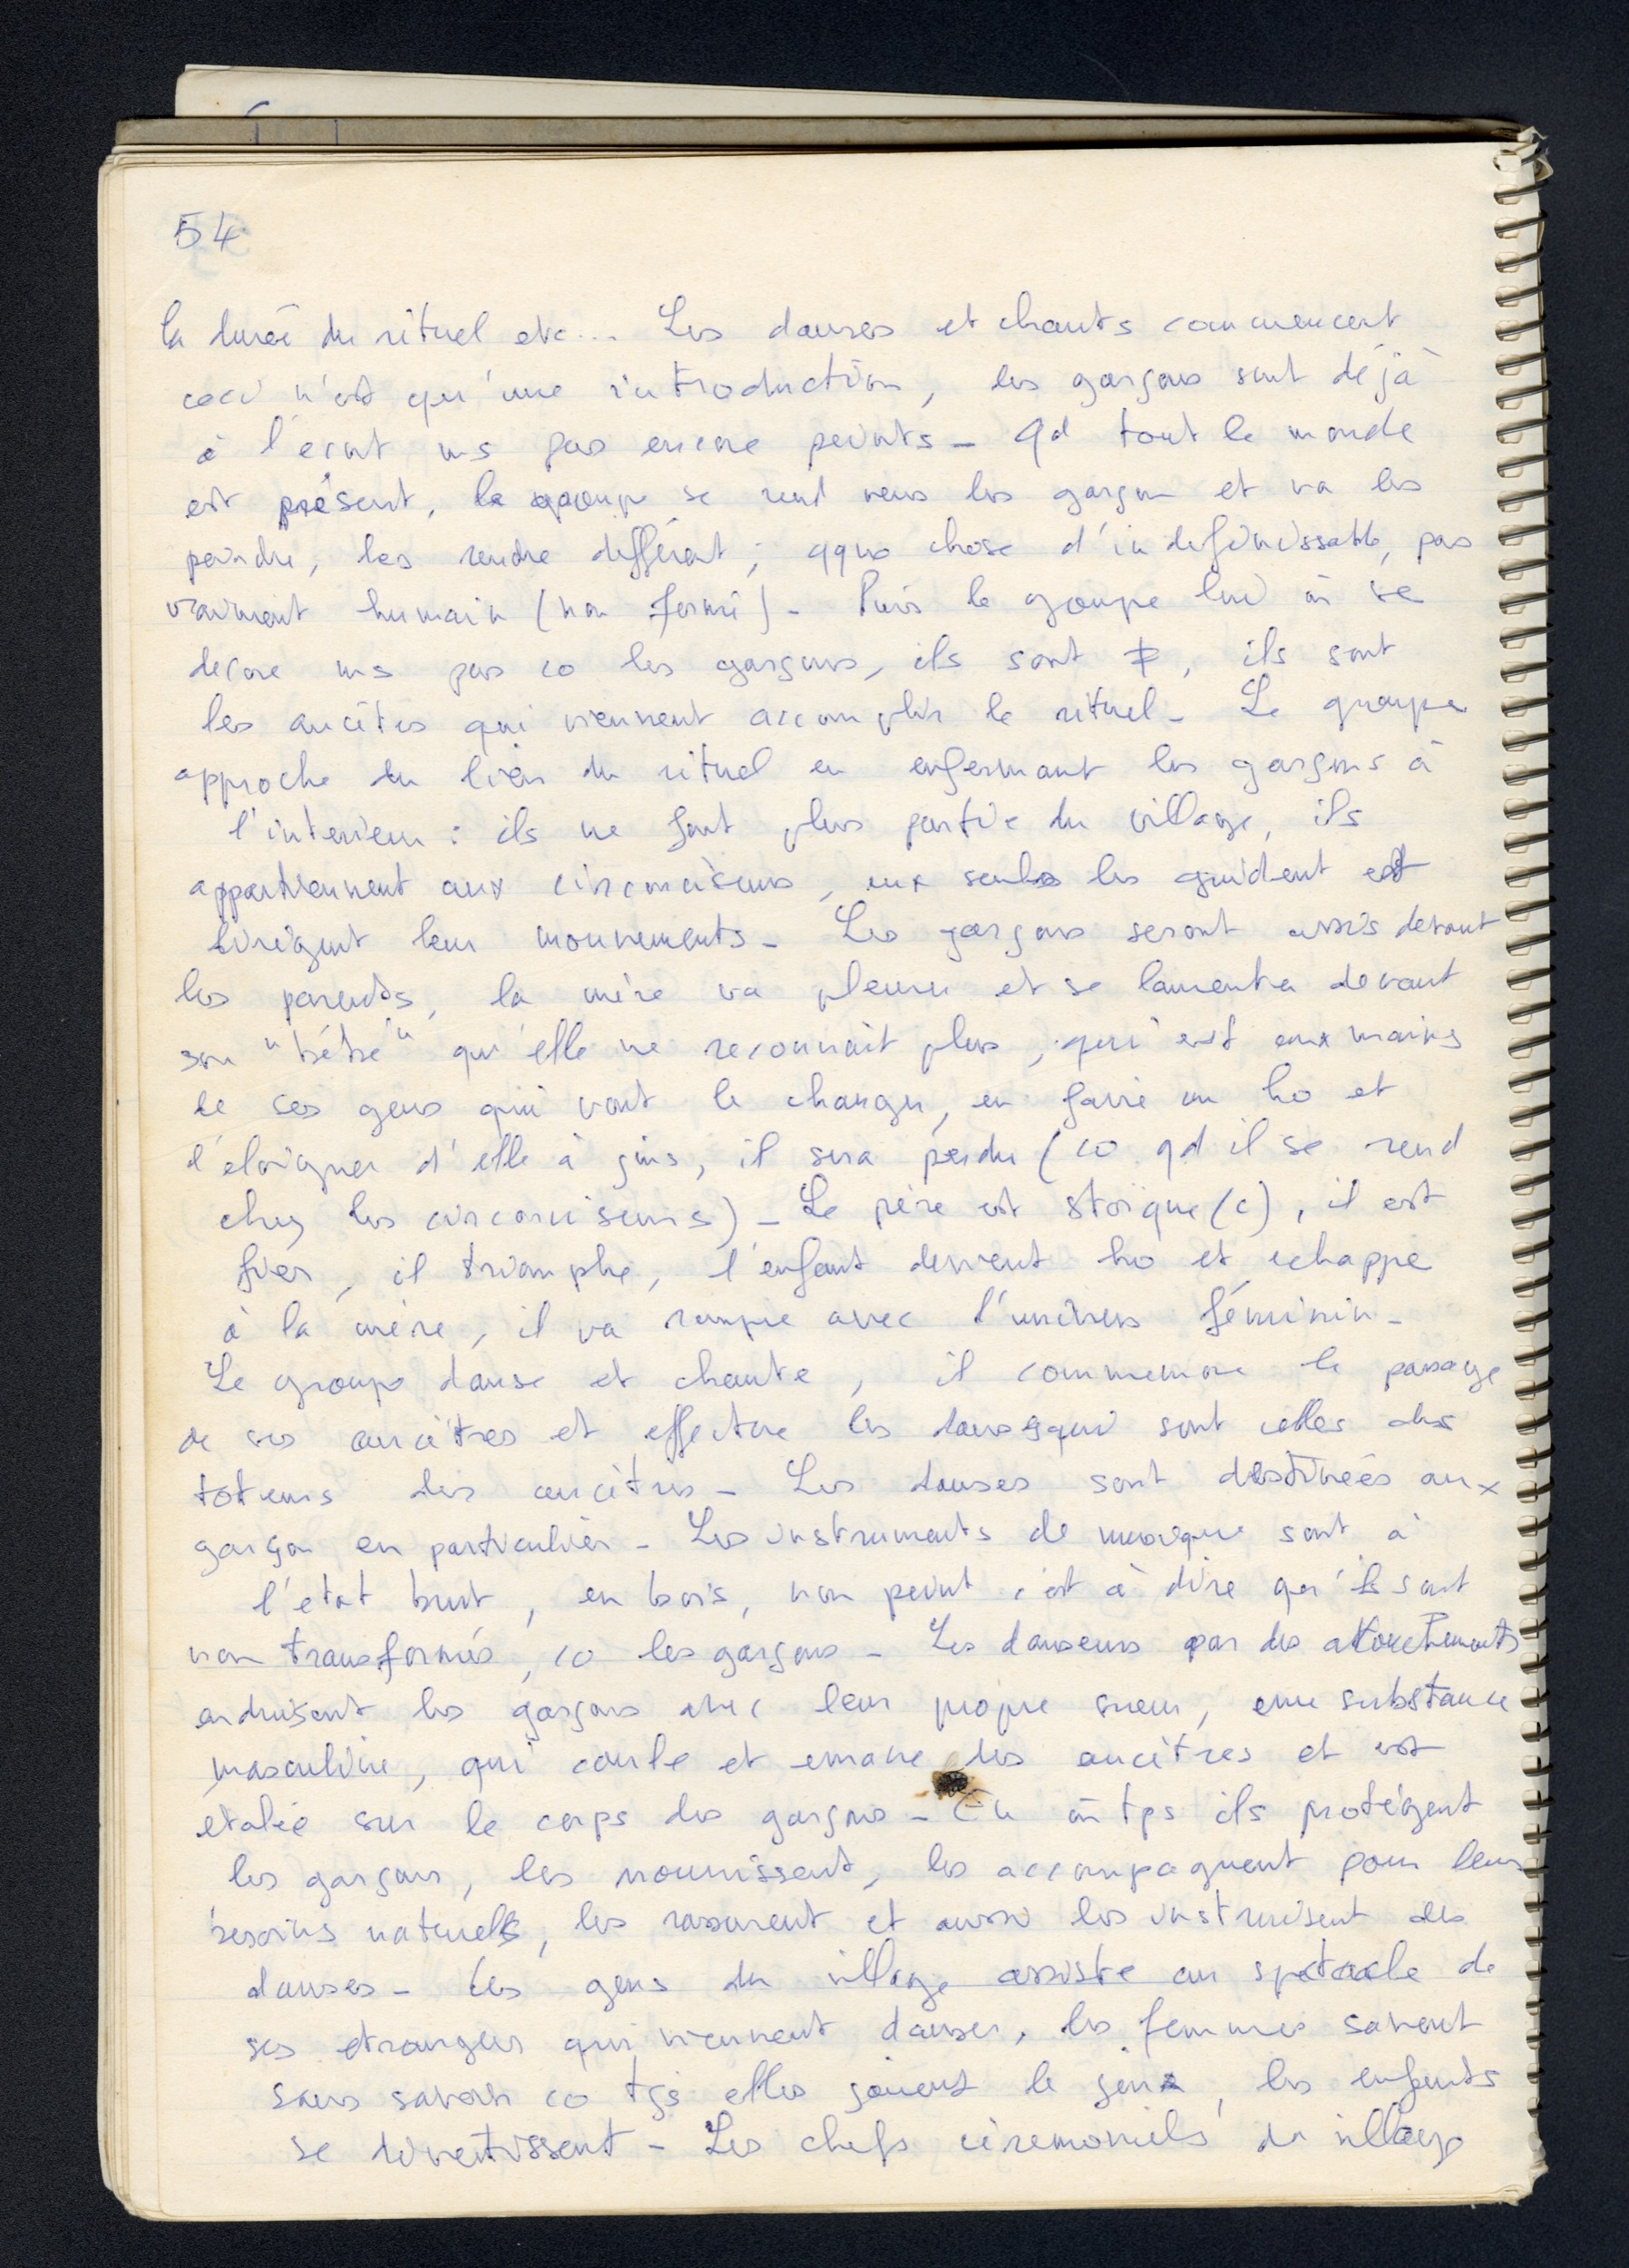 54
la durée du rituel etc... Les danses et chants commencent
ceci n'est qu'une introduction, les garçons sont déjà
à l'écart ms pas encore peints - Qd tout le monde
est présent, le groupe se rend vers les garçon et va les
peindre, les rendre différent ; qque chose d'indefinissable, pas
vraiment humain (non formé) - Puis le groupe lui m̂ se
decore ms pas co les garçons, ils sont ≠, ils sont
les ancêtres qui viennent accomplir le rituel - Le groupe
approche du lieu du rituel en enfermant les garçons à
l'interieur : ils ne font plus partie du village, ils
appartiennent aux circonciseurs, eux seuls les guident et
dirigent leur mouvements - Les garçons seront assis devant
les parents, la mère va pleurer et se lamenter devant
son "bébé" qu'elle ne reconnait plus, qui est aux mains
de ses gens qui vont le changer, en faire un ho et
l'eloigner d'elle à jms, il sera perdu (co qd il se rend
chez les circonciseurs) - Le père est stoïque (c), il est
fier, il triomphe, l'enfant devient ho et echappe
à la mère, il va rompre avec l'univers féminin -
Le groupe danse et chante, il commemore le passage
de ses ancêtres et effectue les danses qui sont celles des
totems des ancêtres - Les danses sont destinées aux
garçon en particulier - Les instruments de musique sont à
l'etat brut, en bois, non peint c'est à dire qu'ils sont
non transformés, co les garçons - Les danseurs par des attouchements
enduisent les garçons avec leur propre sueur, une substance
masculine, qui coule et emane des ancêtres et est
etalée sur le corps des garçons - En m̂ tps ils protègent
les garçons, les nourrissent, les accompagnent pour leur
besoins naturels, les rassurent et aussi les instruisent des
danses - Les gens du village assiste au spectacle de
ses etrangers qui viennent danser, les femmes savent
sans savoir co tjs elles jouent le jeu, les enfants
se divertissent - Les chefs céremoniels du village